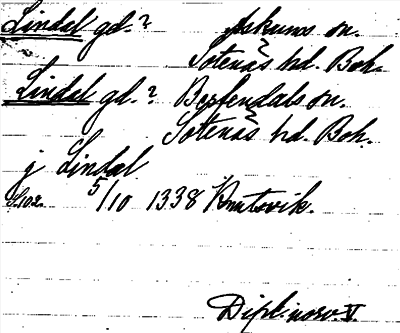 Lindal gd.? Askums sn.
Sotenäs hd. Boh.
Lindal gd.? Bärfendals sn.
Sotenäs hd. Boh.
j Lindal
5/10 1338 Knutsvik.
Dipl. norv. V.